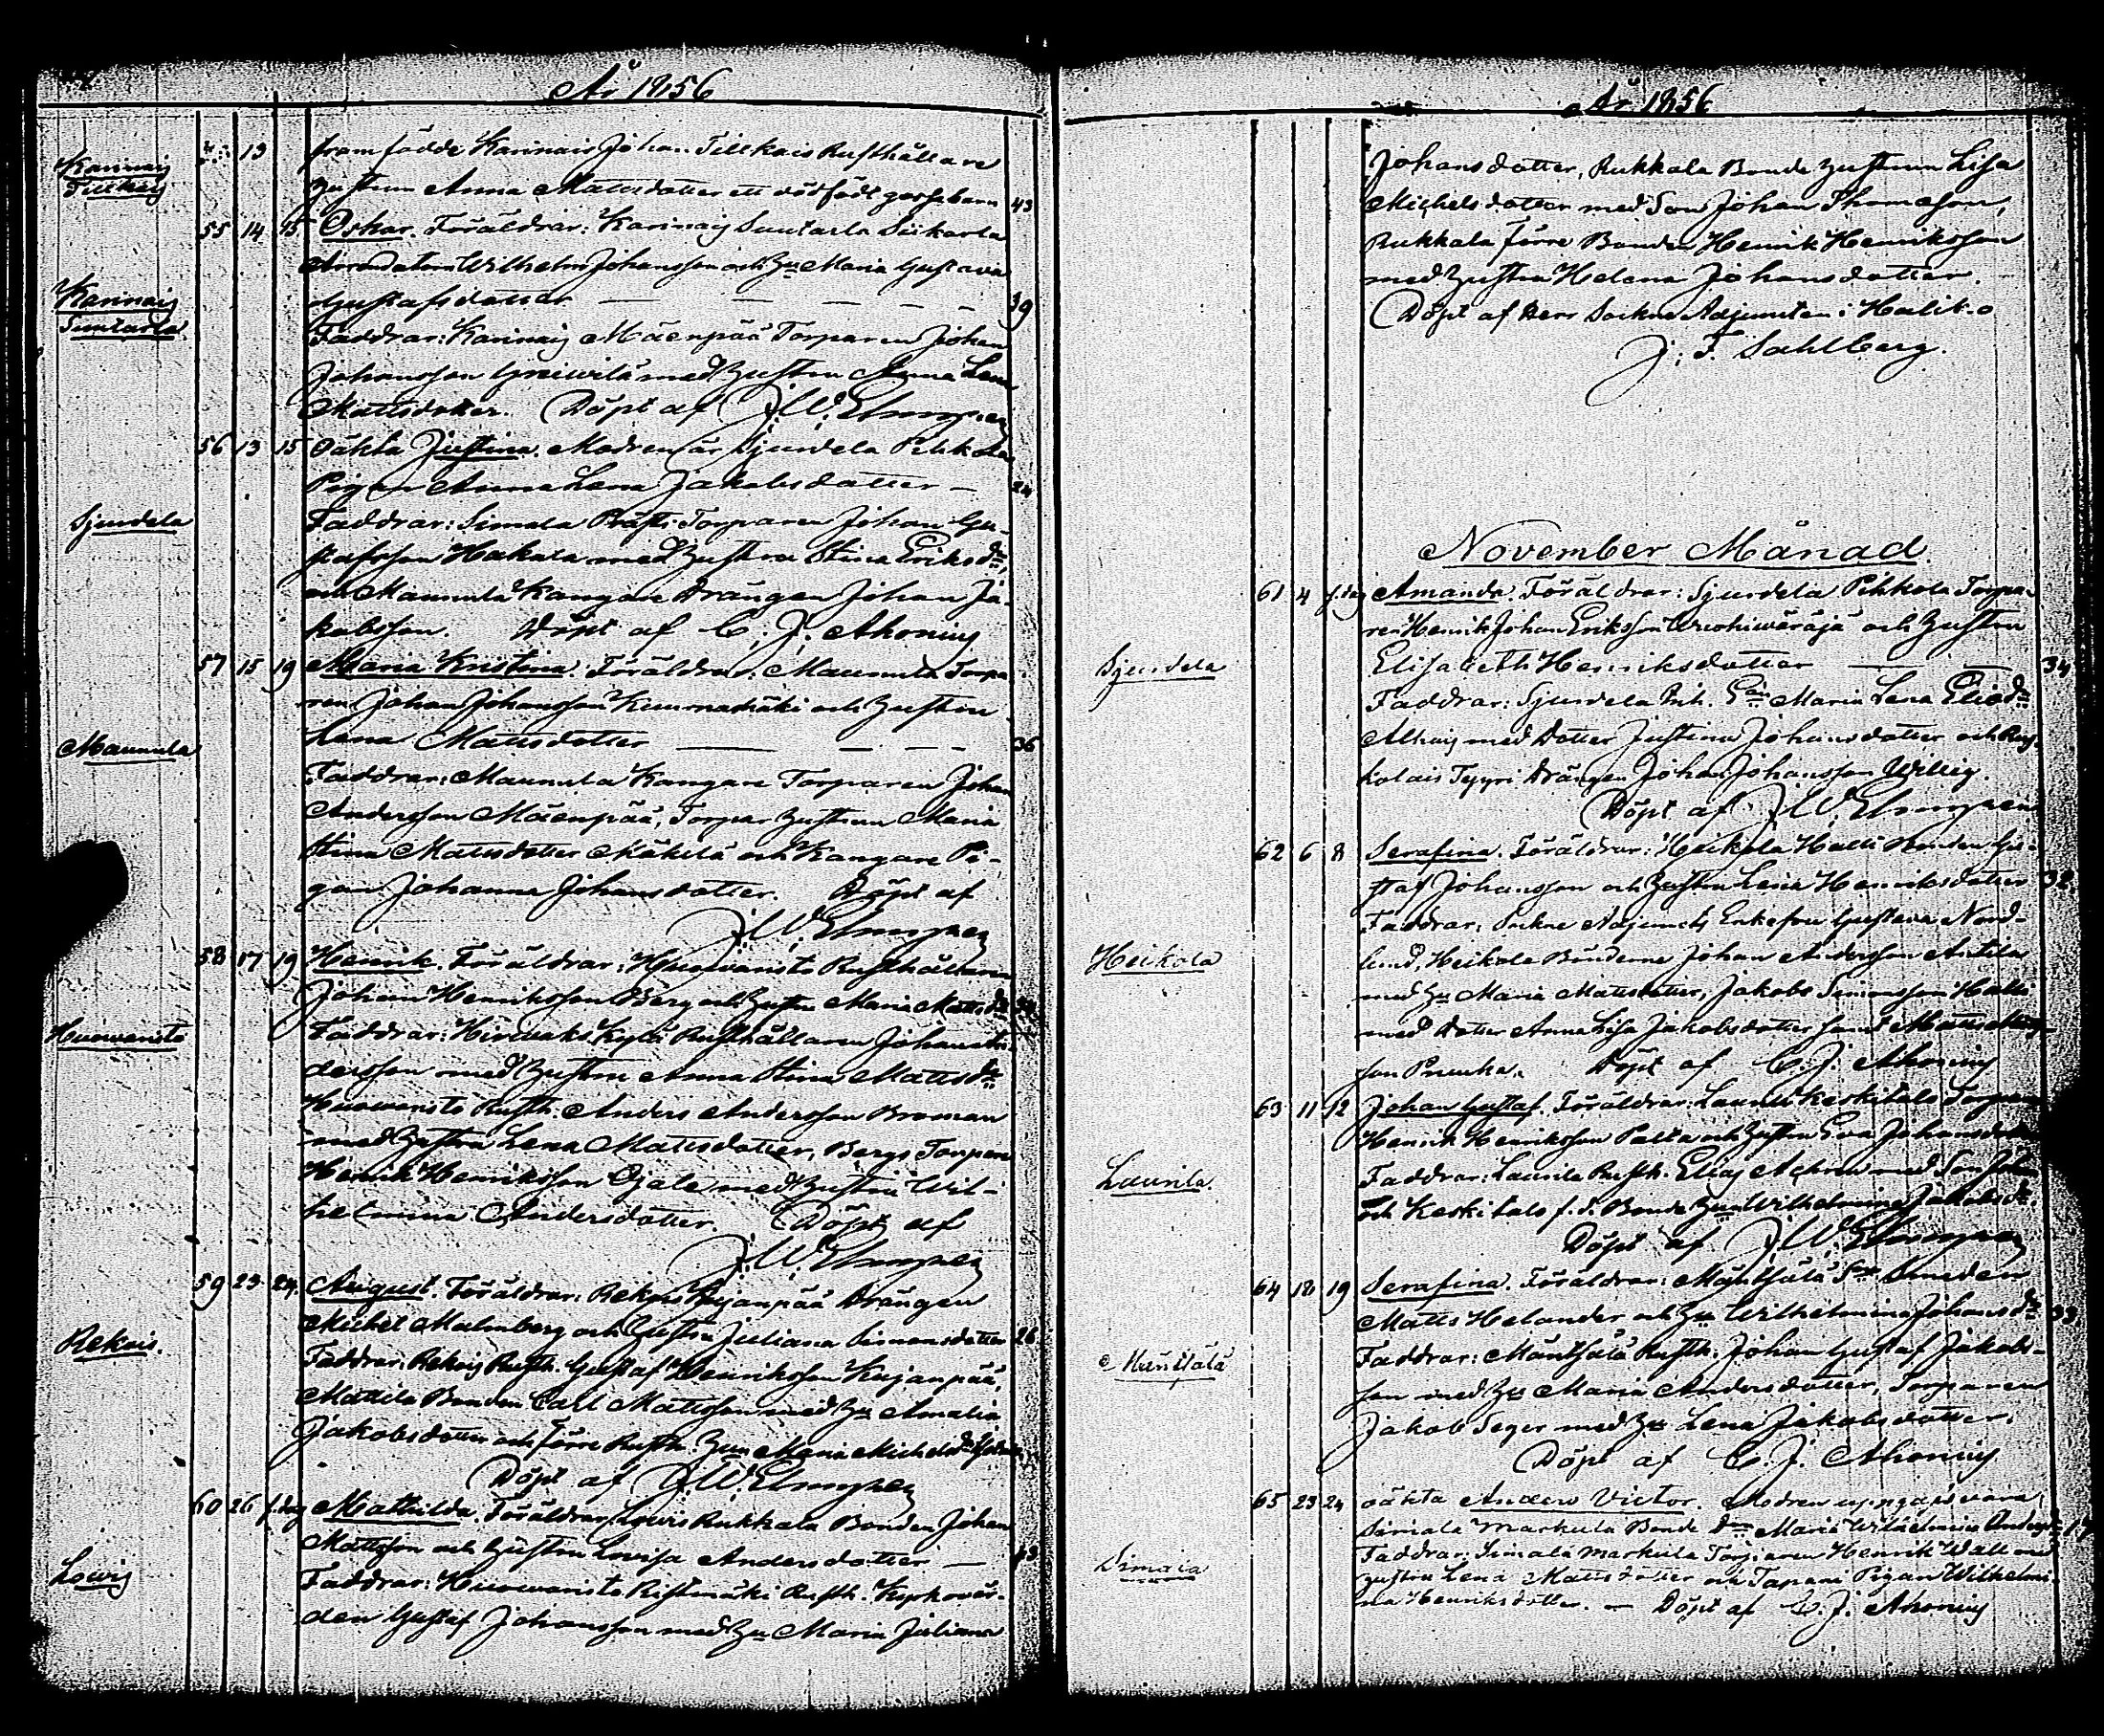 År 1856
Karinais
13 framfödde Karinais Johan Tillkais Rusthållare
hustrun Anna Mattsdotter ett dödfödt gossebarn 43
55 14 15 Oskar. Föräldrar: Karinais Suutarla
Arrendatorn Wilhelm Johansson och Hu Maria Gustava
Karinais
Suutarla
Gustafsdotter 39
Faddrar: Karinais Mäenpää Torparen Johan
Johansson med hustru Anna Lena
Mattsdotter. Döpt af J. W.
56 13 15 Oäkta Justina. Modren är Sjurdela Pihkola
Pigan Anna Lena Jakobsdotter 24
Sjurdela
Faddrar: Simala Torparen Johan Gu-
stafsson Hakala med hustru Stina Eriksdr,
och Maunula Kangare Drängen Johan Ja-
kobsson. Döpt af C. J. Ahonius
57 15 19 Maria Kristina. Föräldrar: Maunula Torpa-
ren Johan Johansson och hustrun
Maunula
Lena Mattsdotter 36
Faddrar: Maunula Kangare Torparen Johan
Andersson Mäenpää, Torpar hustrun Maria
Stina Mattsdotter Mäkelä och Kangare Pi-
gan Johanna Johansdotter. Döpt af
J. W.
58 17 19 Henrik. Föräldrar: Huowaristo Rusthållaren
Johan Henriksson Berg och hustru Maria Mattsdr
Huowaristo
Faddrar: Kylä Rusthållaren Johan An-
dersson med hustru Anna Stina Mattsdr
Huowaristo Rusth. Anders Andersson Broman
med hustru Lena Mattsdotter, Bergs Torparen
Henrik Henriksson Ojala med hustru Wil-
helmina Andersdotter. Döpt af
J. W.
59 23 24 August. Föräldrar: Rekois Kujanpää Drängen
Michel Malmberg och hustru Juliana Simonsdotter 26
Rekois.
Faddrar: Rekois Rusth. Gustaf Henriksson Kujanpää,
Mattila Bonden Carl Mattsson med Hu Amalia
Jakobsdotter och förre Rusth. Hun Maria Michelsdr
Döpt af J. W.
60 26 f.dag Mathilda. Föräldrar: Lowis Rukkala Bonden Johan
Mattsson och hustru Lovisa Andersdotter
Lowis
Faddrar: Huowaristo Ristimäki Rusth. Kyrkovär-
den Gustaf Johansson med Hu Maria Juliana
År 1856
Johansdotter, Rukkala Bonde hustrun Lisa
Michelsdotter med Son Johan Thomasson,
Rukkala förre Bonden Henrik Henriksson
med hustru Helena Johansdotter.
Döpt af Herr Sockne Adjuncten i Halikko
J. F. Sahlberg.
November Månad
61 4 f.dag Amanda. Föräldrar: Sjurdela Pihkola Torpa-
ren Henrik Johan Eriksson och hustrun
Sjurdela
Elisabeth Henriksdotter 34
Faddrar: Sjurdela Maria Lena Eliædr
med Dotter Justina Johansdotter och
Tyyri Drängen Johan Johansson Willig.
Döpt af J. W.
62 6 8 Serafina. Föräldrar: Heikola Halli Bonden Gu-
staf Johansson och hustru Lena Henriksdotter 32
Faddrar: Sockne Adjuncts Enkefru Gustava Nord-
Heikola
lund, Heikola Bönderne Johan Andersson Anttila
med Hu Maria Mattsdotter, Jakob Simonsson Halli
med Dotter Anna Lisa Jakobsdotter samt Matts
son Prunka. Döpt af C. J. Ahonius
63 11 12 Johan Gustaf. Föräldrar: Launila Keskitalo Torparen
Henrik Henriksson och hustru Eva Johansdotter
Launila.
Faddrar: Launila Rusth: Elias med Son
och Keskitalo f. d. Bonde Hun Wilhelmina Jakobsdr.
Döpt af J. W.
64 18 19 Serafina. Föräldrar: Mäntsälä Smeden
Matts Helander och Hu Wilhelmina Johansdr 33
Mäntsälä
Faddrar: Mäntsälä Rusth: Johan Gustaf Jakobs-
son med Hu Maria Andersdotter, Torparen
Jakob Seger med Hu Lena Jakobsdotter.
Döpt af C. J. Ahonius
65 23 24 oäkta Anders Victor. Modren uppgifves vara
Simala Markula Bonde Maria Wilhelmina
Simala
Faddrar: Simala Markula Torparen Henrik Wall med
hustru Lena Mattsdotter och Tapani Pigan Wilhelmi-
na Henriksdotter. Döpt af C. J. Ahonius